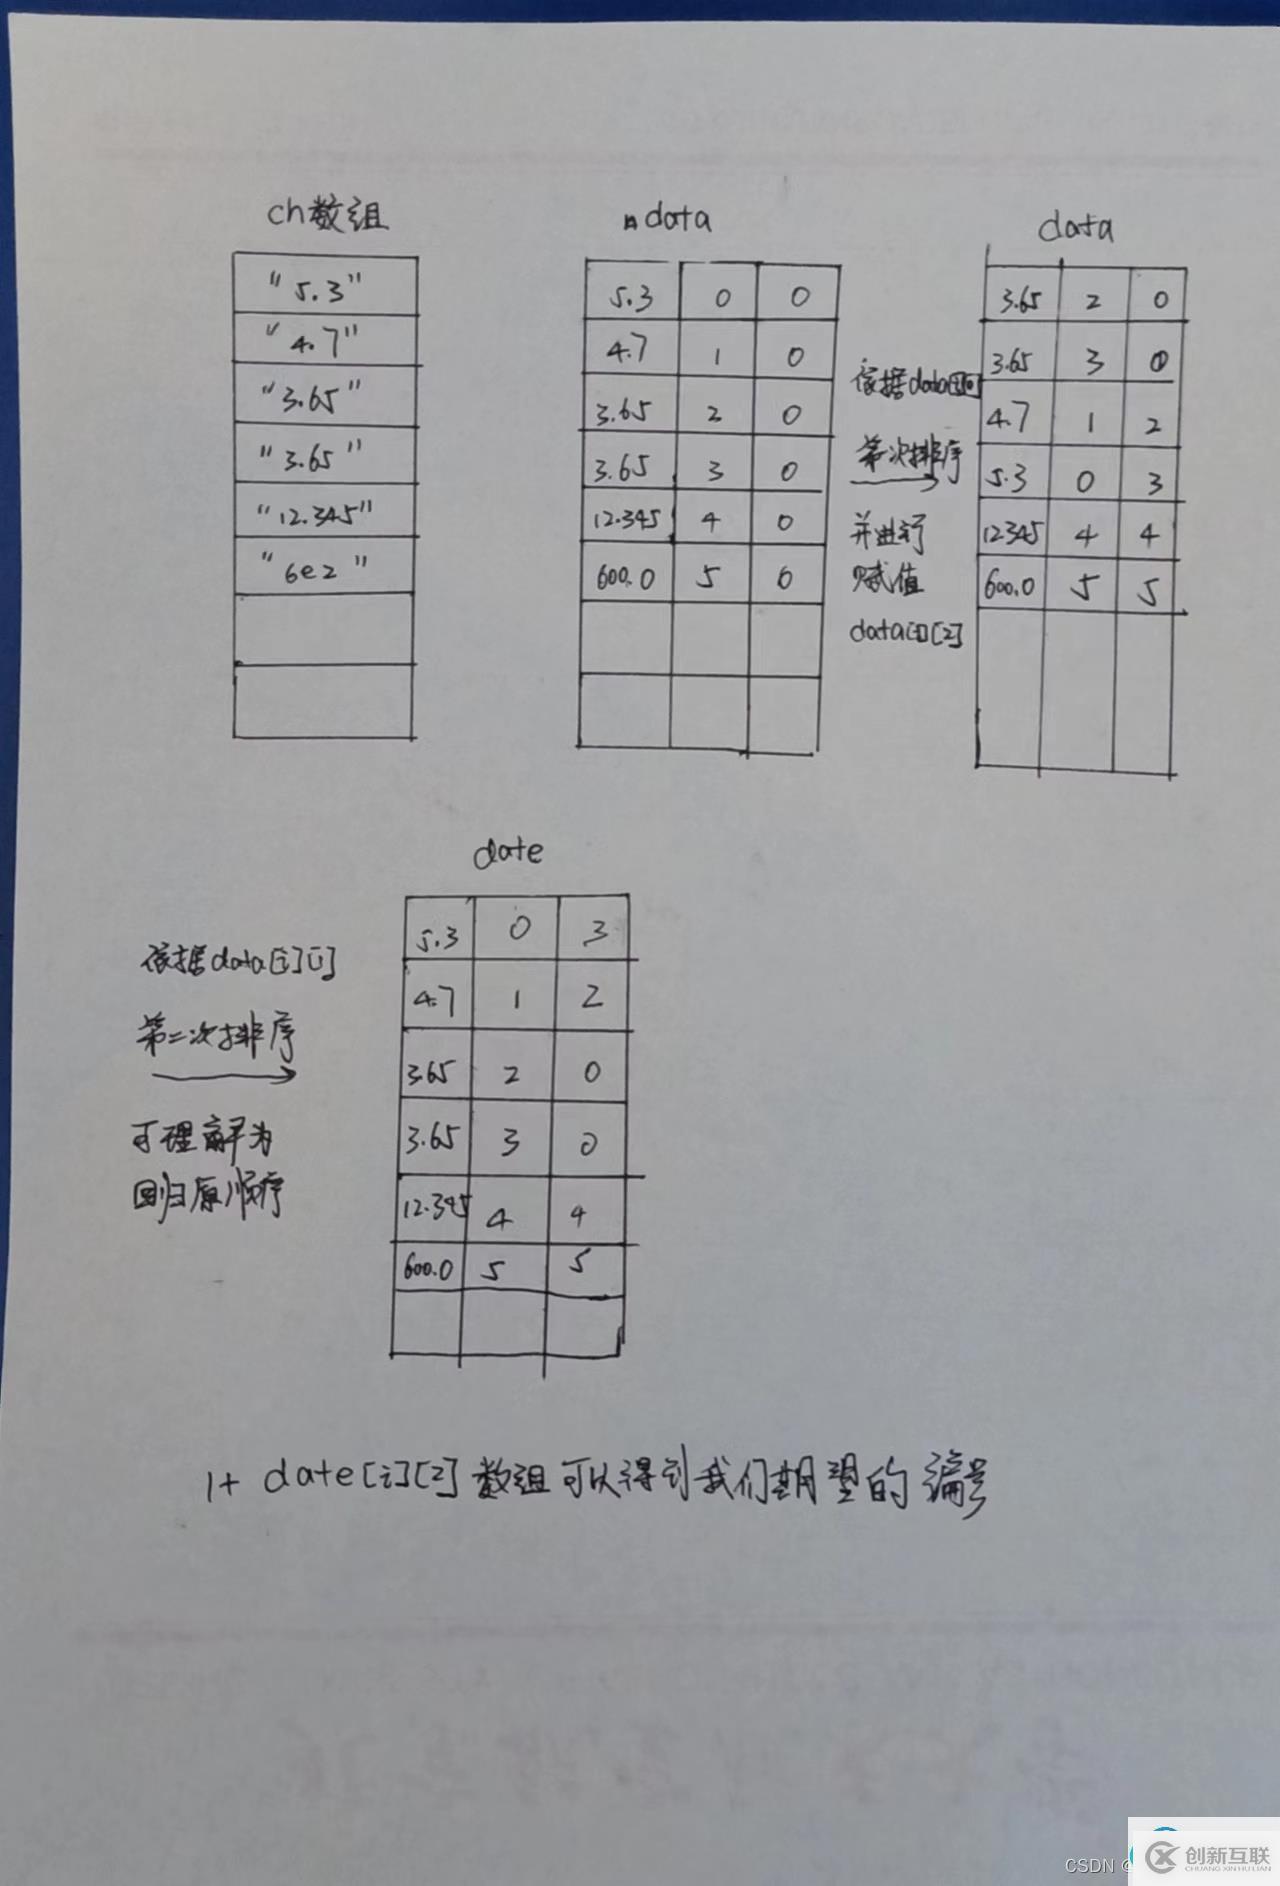 ch数组
"5.3"
"4.7"
"3.65"
"3.65"
"12.345"
"6e2"
data
5.3 0 0
4.7 1 0
3.65 2 0
3.65 3 0
12.345 4 0
600.0 5 0
依据data[i][0]
第一次排序
并进行
赋值
data[i][2]
data
3.65 2 0
3.65 3 0
4.7 1 2
5.3 0 3
12.345 4 4
600.0 5 5
依据data[i][1]
第二次排序
可理解为
回归原顺序
date
5.3 0 3
4.7 1 2
3.65 2 0
3.65 3 0
12.345 4 4
600.0 5 5
1+ date[i][2] 数组可以得到我们期望的编号
CSDN @
创新互联
CHUANG XIN HU LIAN